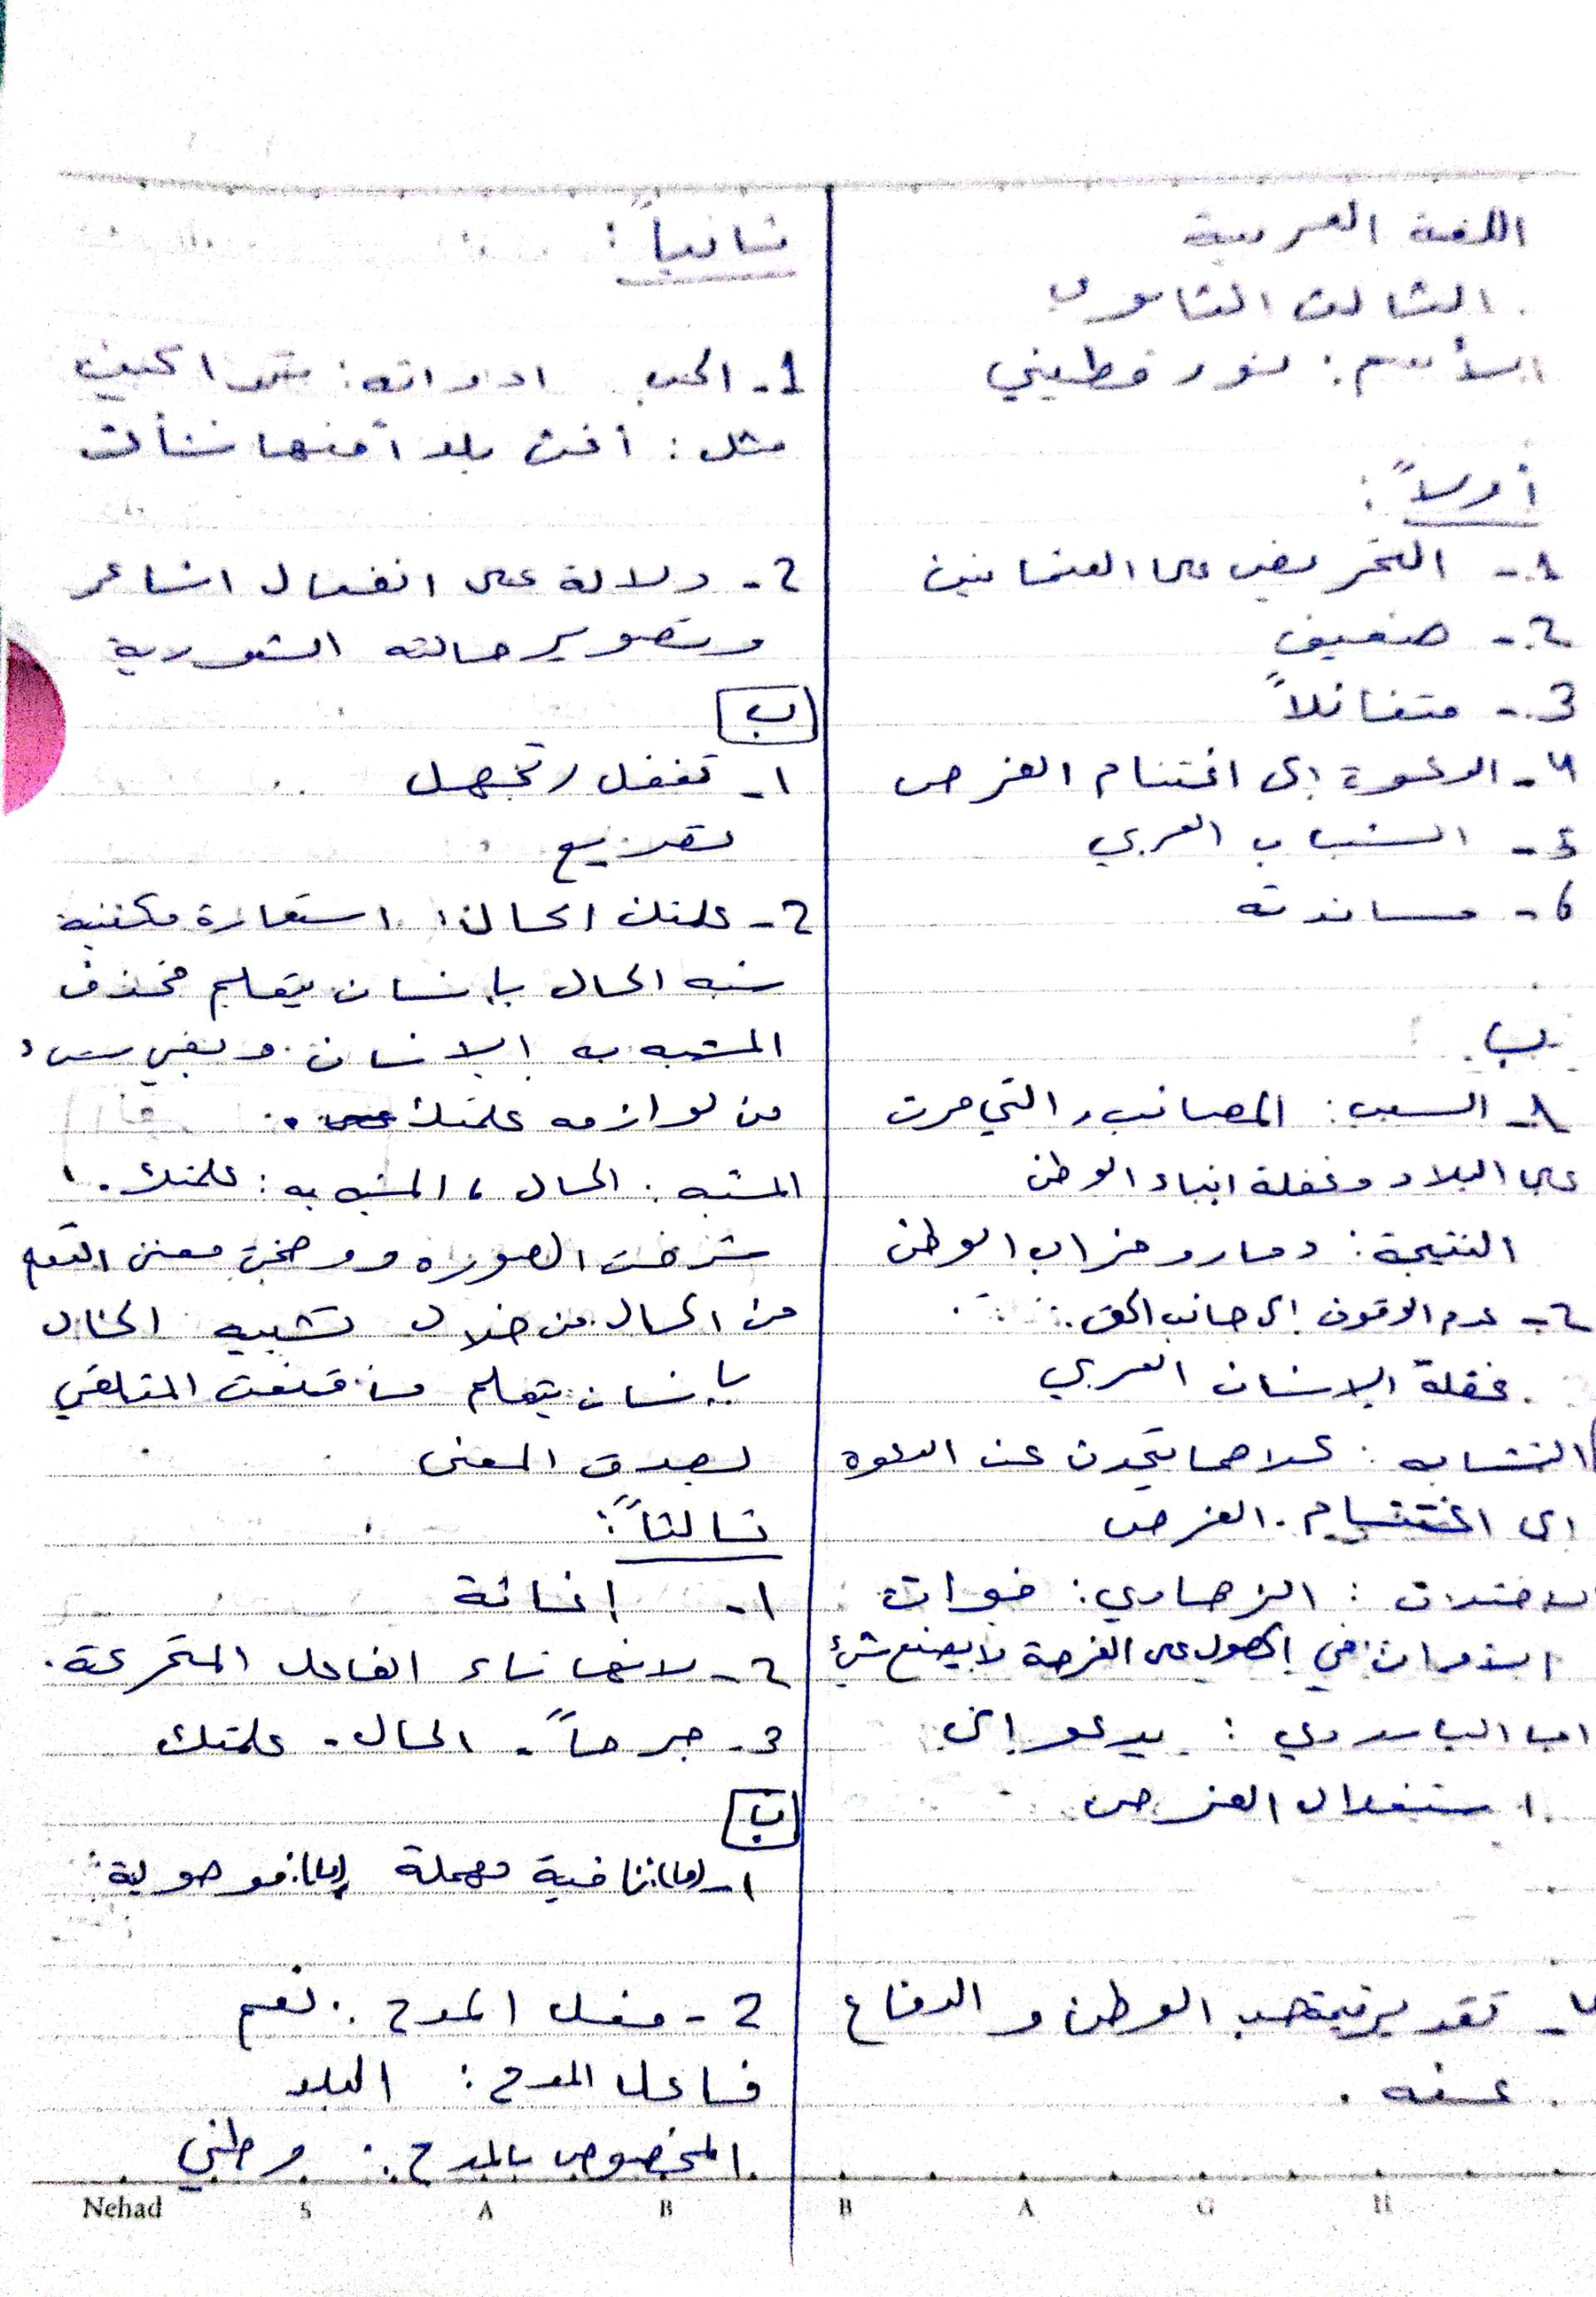 اللغة العربية
الثالث الثانوي
الأسم: نور قطيني
أولاً:
1- التحريض على العثمانيين
2- ضعيف
3- متفائلاً
4- الدعوة إلى اغتنام الفرص
5- الشباب العربي
6- مساندته
ب
1- السبب: المصائب التي مرت
على البلاد وغفلة ابناء الوطن
النتيجة: دمار وخراب الوطن
2- عدم الوقوف إلى جانب الحق.
غفلة الإنسان العربي
التشابه: كلاهما يتحدث عن الدعوة
الى اغتنام الفرص
الاختلاف: الزهاوي: فوات
في الحصول على الفرصة لا يصنع شيء
البارودي: يدعو إلى
استغلال الفرص
تقدير حب الوطن والدفاع
عنه.
ثانياً:
1- ادواته:
مثل: أفي بلد أمنها
2- دلالة على انفعال الشاعر
وتصوير حالته الشعورية
ب
1- تغفل / تجهل
تقريع
2- علمتك الحال: استعارة مكنية
شبه الحال بإنسان يتعلم فحذف
المشبه به الإنسان وبقي شيء
من لوازمه علمتك.
المشبه: الحال، المشبه به: علمتك.
شرحت الصورة ووضحت معنى التعلم
من الحال من خلال تشبيه الحال
بإنسان يتعلم فأقنعت المتلقي
بصدق المعنى
ثالثاً:
1- إغاثة
2- لانها تاء الفاعل المتحركة.
3- جرحاً - الحال - علمتك
ب
1- (ما): نافية مهملة (ما): موصولية
2- فعل المدح: نعم
فاعل المدح: البلد
المخصوص بالمدح: وطني
Nehad S A B B A G H